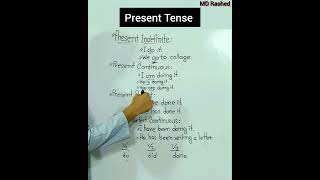 MD Rashed
Present Tense
Present Indefinite:
I do it.
We go to collage.
Present Continuous:
I am doing it.
He is doing it.
You are doing it.
Present
done it.
has done it.
Continuous:
I have been doing it.
He has been writing a letter.
V1 V2 V3
do did done